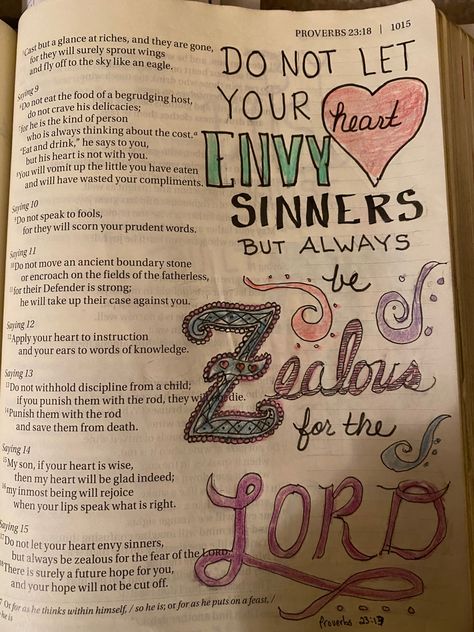 PROVERBS 23:18 | 1015
5Cast but a glance at riches, and they are gone,
for they will surely sprout wings
and fly off to the sky like an eagle.
Saying 9
6Do not eat the food of a begrudging host,
do not crave his delicacies;
7for he is the kind of person
who is always thinking about the cost.a
“Eat and drink,” he says to you,
but his heart is not with you.
8You will vomit up the little you have eaten
and will have wasted your compliments.
Saying 10
9Do not speak to fools,
for they will scorn your prudent words.
Saying 11
10Do not move an ancient boundary stone
or encroach on the fields of the fatherless,
11for their Defender is strong;
he will take up their case against you.
Saying 12
12Apply your heart to instruction
and your ears to words of knowledge.
Saying 13
13Do not withhold discipline from a child;
if you punish them with the rod, they will not die.
14Punish them with the rod
and save them from death.
Saying 14
15My son, if your heart is wise,
then my heart will be glad indeed;
16my inmost being will rejoice
when your lips speak what is right.
Saying 15
17Do not let your heart envy sinners,
but always be zealous for the fear of the LORD.
18There is surely a future hope for you,
and your hope will not be cut off.
7 Or for as he thinks within himself, / so he is; or for as he puts on a feast, /
he is
DO NOT LET
YOUR heart
ENVY
SINNERS
BUT ALWAYS
be
Zealous
for the
LORD
Proverbs 23:17